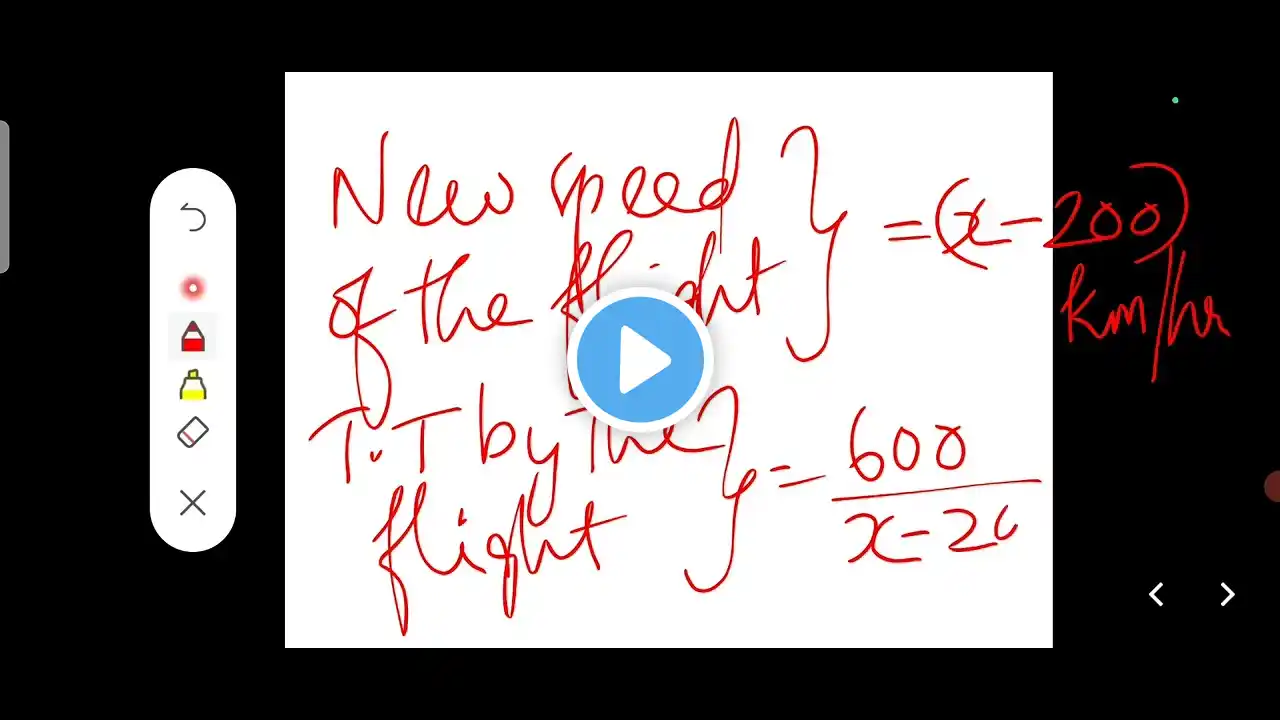 New speed } = (x - 200)
of the flight km/hr
T.T by the } = 600
flight x - 20